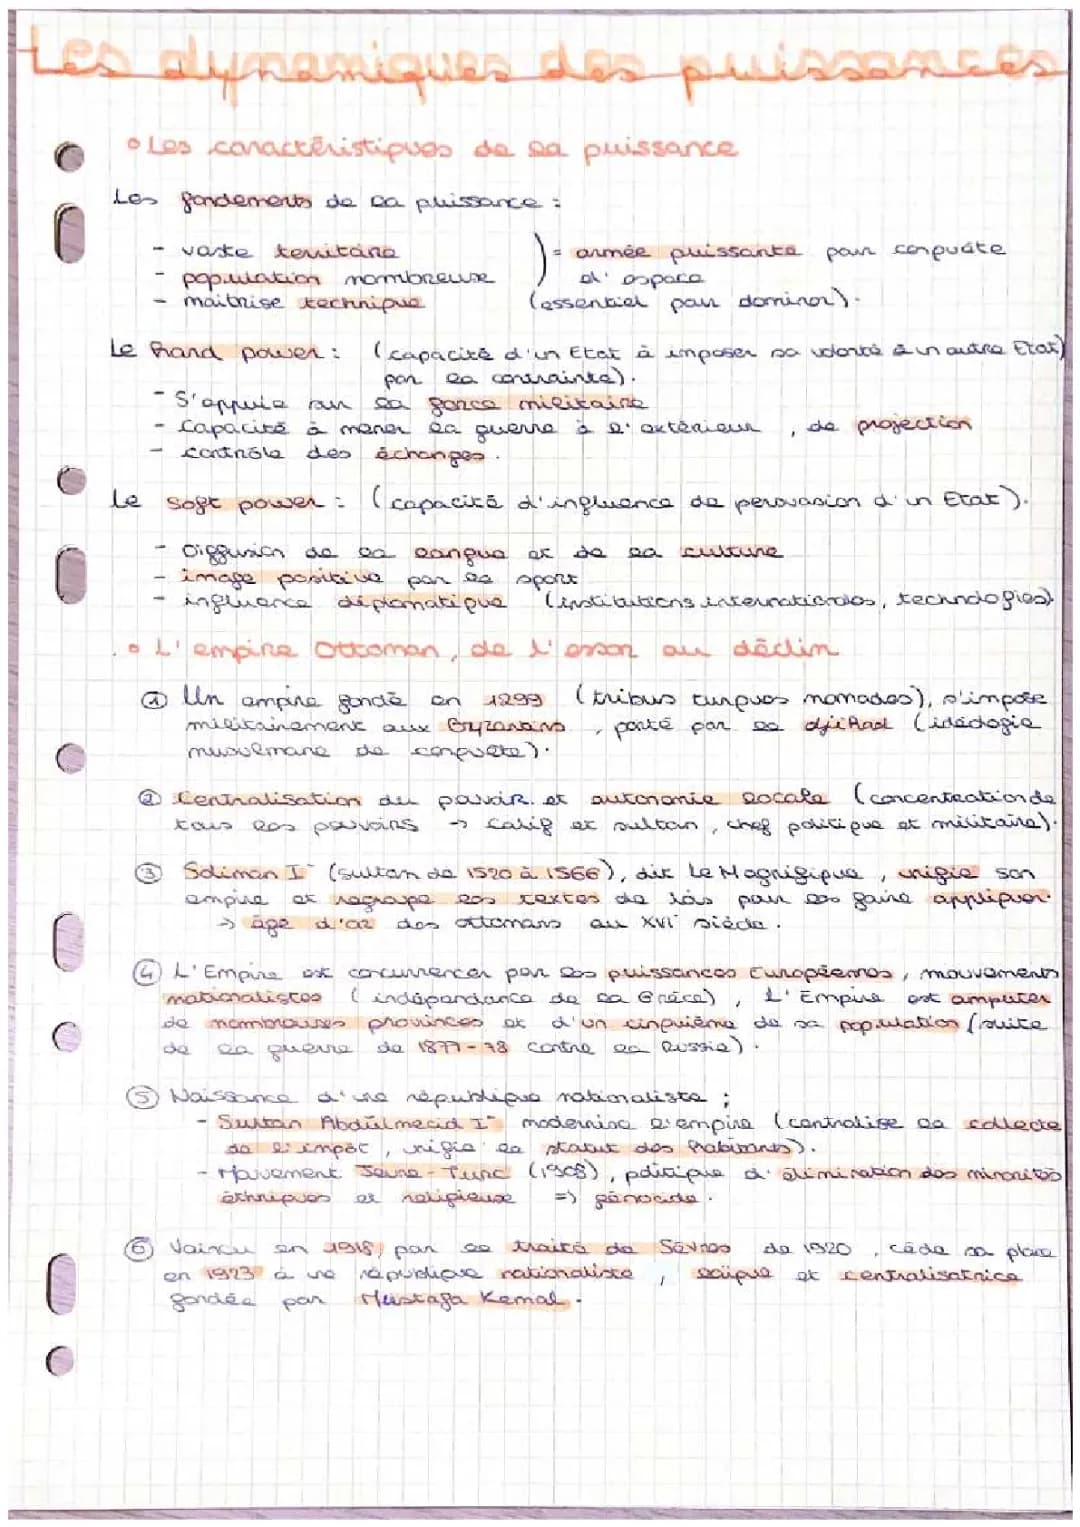 Les dynamiques des puissances
• Les caractéristiques de la puissance
Les fondements de la puissance :
- vaste territoire ) = armée puissante pour conquête
- population nombreuse ) d'espace
- maitrise technique (essentiel pour dominer).
Le hard power : (capacité d'un Etat à imposer sa volonté à un autre Etat)
par la contrainte).
- S'appuie sur la force militaire
- Capacité à mener la guerre à l'extérieur, de projection
- contrôle des échanges.
Le soft power : (capacité d'influence de persuasion d'un Etat).
- Diffusion de la langue et de la culture
- image positive par le sport
- influence diplomatique (institutions internationales, technologies)
• L'empire Ottoman, de l'essor au déclin
① Un empire fondé en 1299 (tribus turques nomades), s'impose
militairement aux Byzantins, porté par le djihad (idéologie
musulmane de conquête).
② Centralisation du pouvoir et autonomie locale (concentration de
tous les pouvoirs → calif et sultan, chef politique et militaire).
③ Soliman Ier (sultan de 1520 à 1566), dit Le Magnifique, unifie son
empire et regroupe les textes de lois pour les faire appliquer.
→ âge d'or des ottomans au XVIe siècle.
④ L'Empire est concurrencer par les puissances Européennes, mouvements
nationalistes (indépendance de la Grèce), L'Empire est amputer
de nombreuses provinces et d'un cinquième de sa population (suite
de la guerre de 1877-78 contre la Russie).
⑤ Naissance d'une république nationaliste ;
- Sultan Abdülmecid Ier modernise l'empire (centralise la collecte
de l'impôt, unifie la statut des habitants).
- Mouvement Jeune-Turc (1908), politique d'élimination des minorités
éthniques et religieuse => génocide.
⑥ Vaincu en 1918, par le traité de Sèvres de 1920, cède sa place
en 1923 à une république nationaliste, laïque et centralisatrice
fondée par Mustafa Kemal.